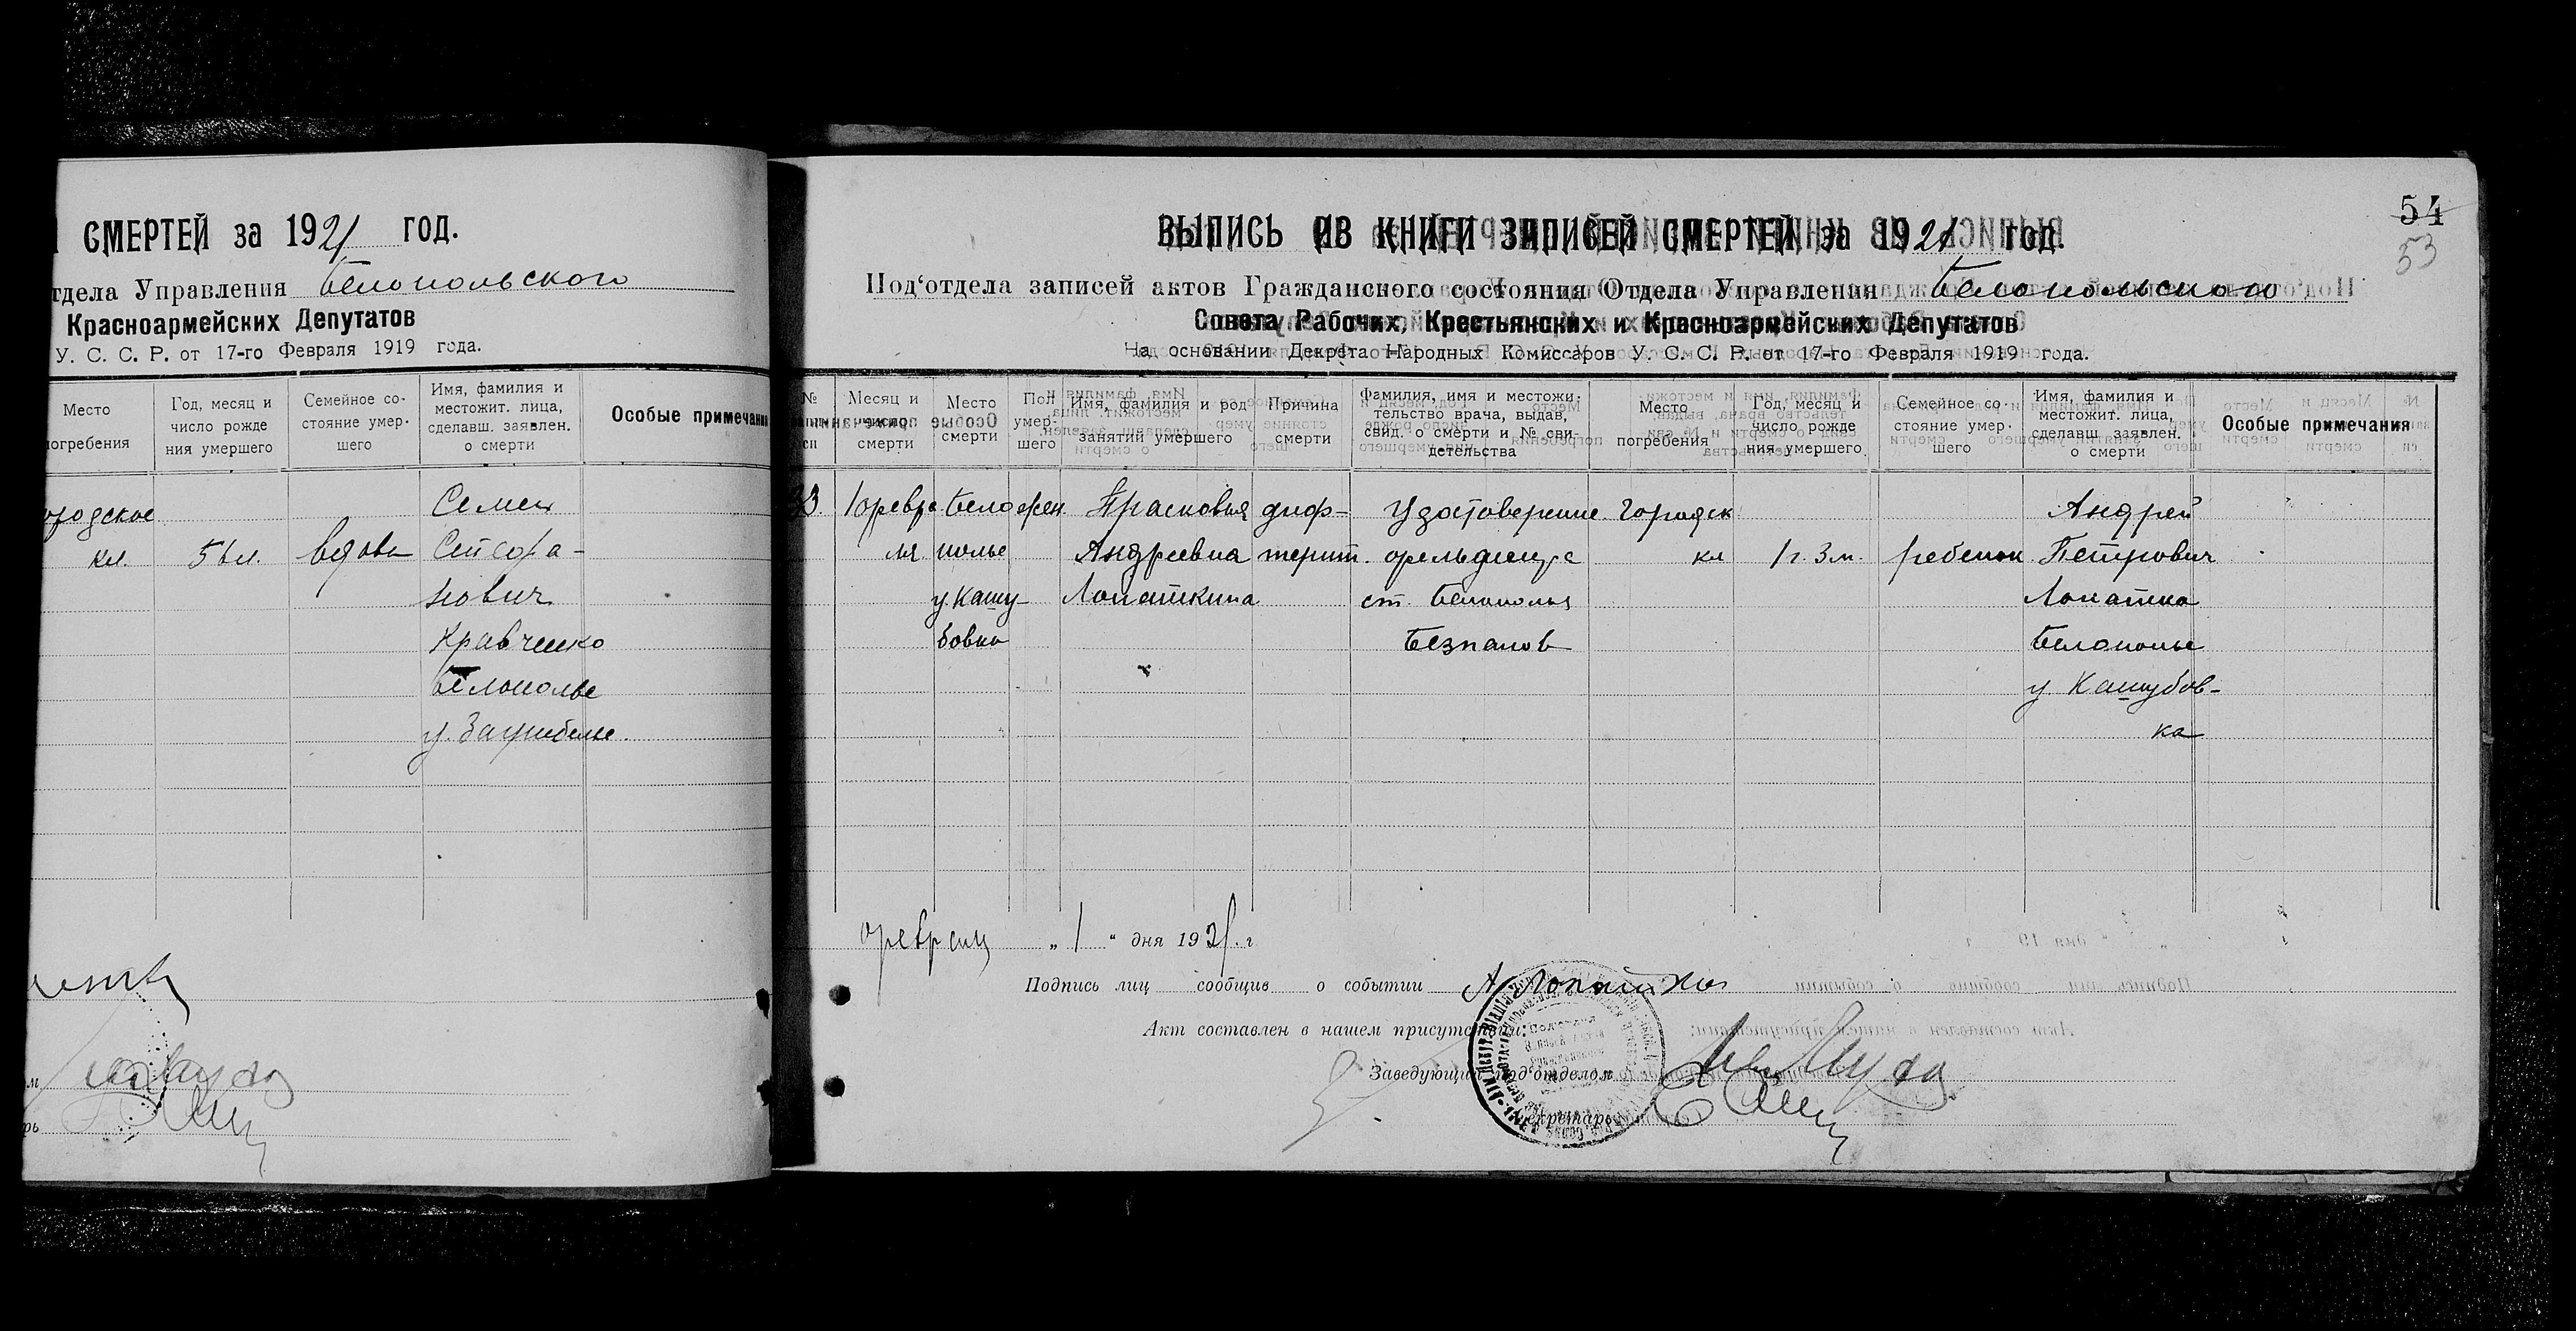 СМЕРТЕЙ за 1921 год.
отдела Управления Белопольского
Красноармейских Депутатов
У. С. С. Р. от 17-го Февраля 1919 года.
Место погребения
Год, месяц и число рожде ния умершего
Семейное со- стояние умер- шего
Имя, фамилия и местожит. лица, сделавш. заявлен. о смерти
Особые примечания
Семен
городское
кл.
вдова
Стефа-
нович
Кравченко
Белополье
54
53
ВЫПИСЬ ИЗ КНИГИ ЗАПИСЕЙ СМЕРТЕЙ за 1921 год.
Под‘отдела записей актов Гражданского состояния Отдела Управления Белопольского
Совета Рабочих, Крестьянских и Красноармейских Депутатов
На основании Декрета Народных Комиссаров У. С. С. Р. от 17-го Февраля 1919 года.
№
Месяц и число смерти
Место смерти
Пол умер- шего
Имя, фамилия и род занятий умершего
Причина смерти
Фамилия, имя и местожи- тельство врача, выдав, свид. о смерти и № сви- детельства
Место погребения
Год, месяц и число рожде ния умершего
Семейное со- стояние умер- шего
Имя, фамилия и местожит. лица, сделавш. заявлен. о смерти
Особые примечания
1 февра Бело жен. Прасковья диф- Удостоверение Городск Андрей
ля полье Андреевна терит. фельдшера кл 1 г. 3 м. ребенок Петрович
у. Кашу- Лопаткина ст. Белополья Лопатка
бовка Безпалов Белополье
у Кашубов-
ка
февраля „ 1 “ дня 1921. г
Подпись лиц сообщив о событии А Лопатка
Акт составлен в нашем присутствии:
Заведующий под‘отделом
Секретарь